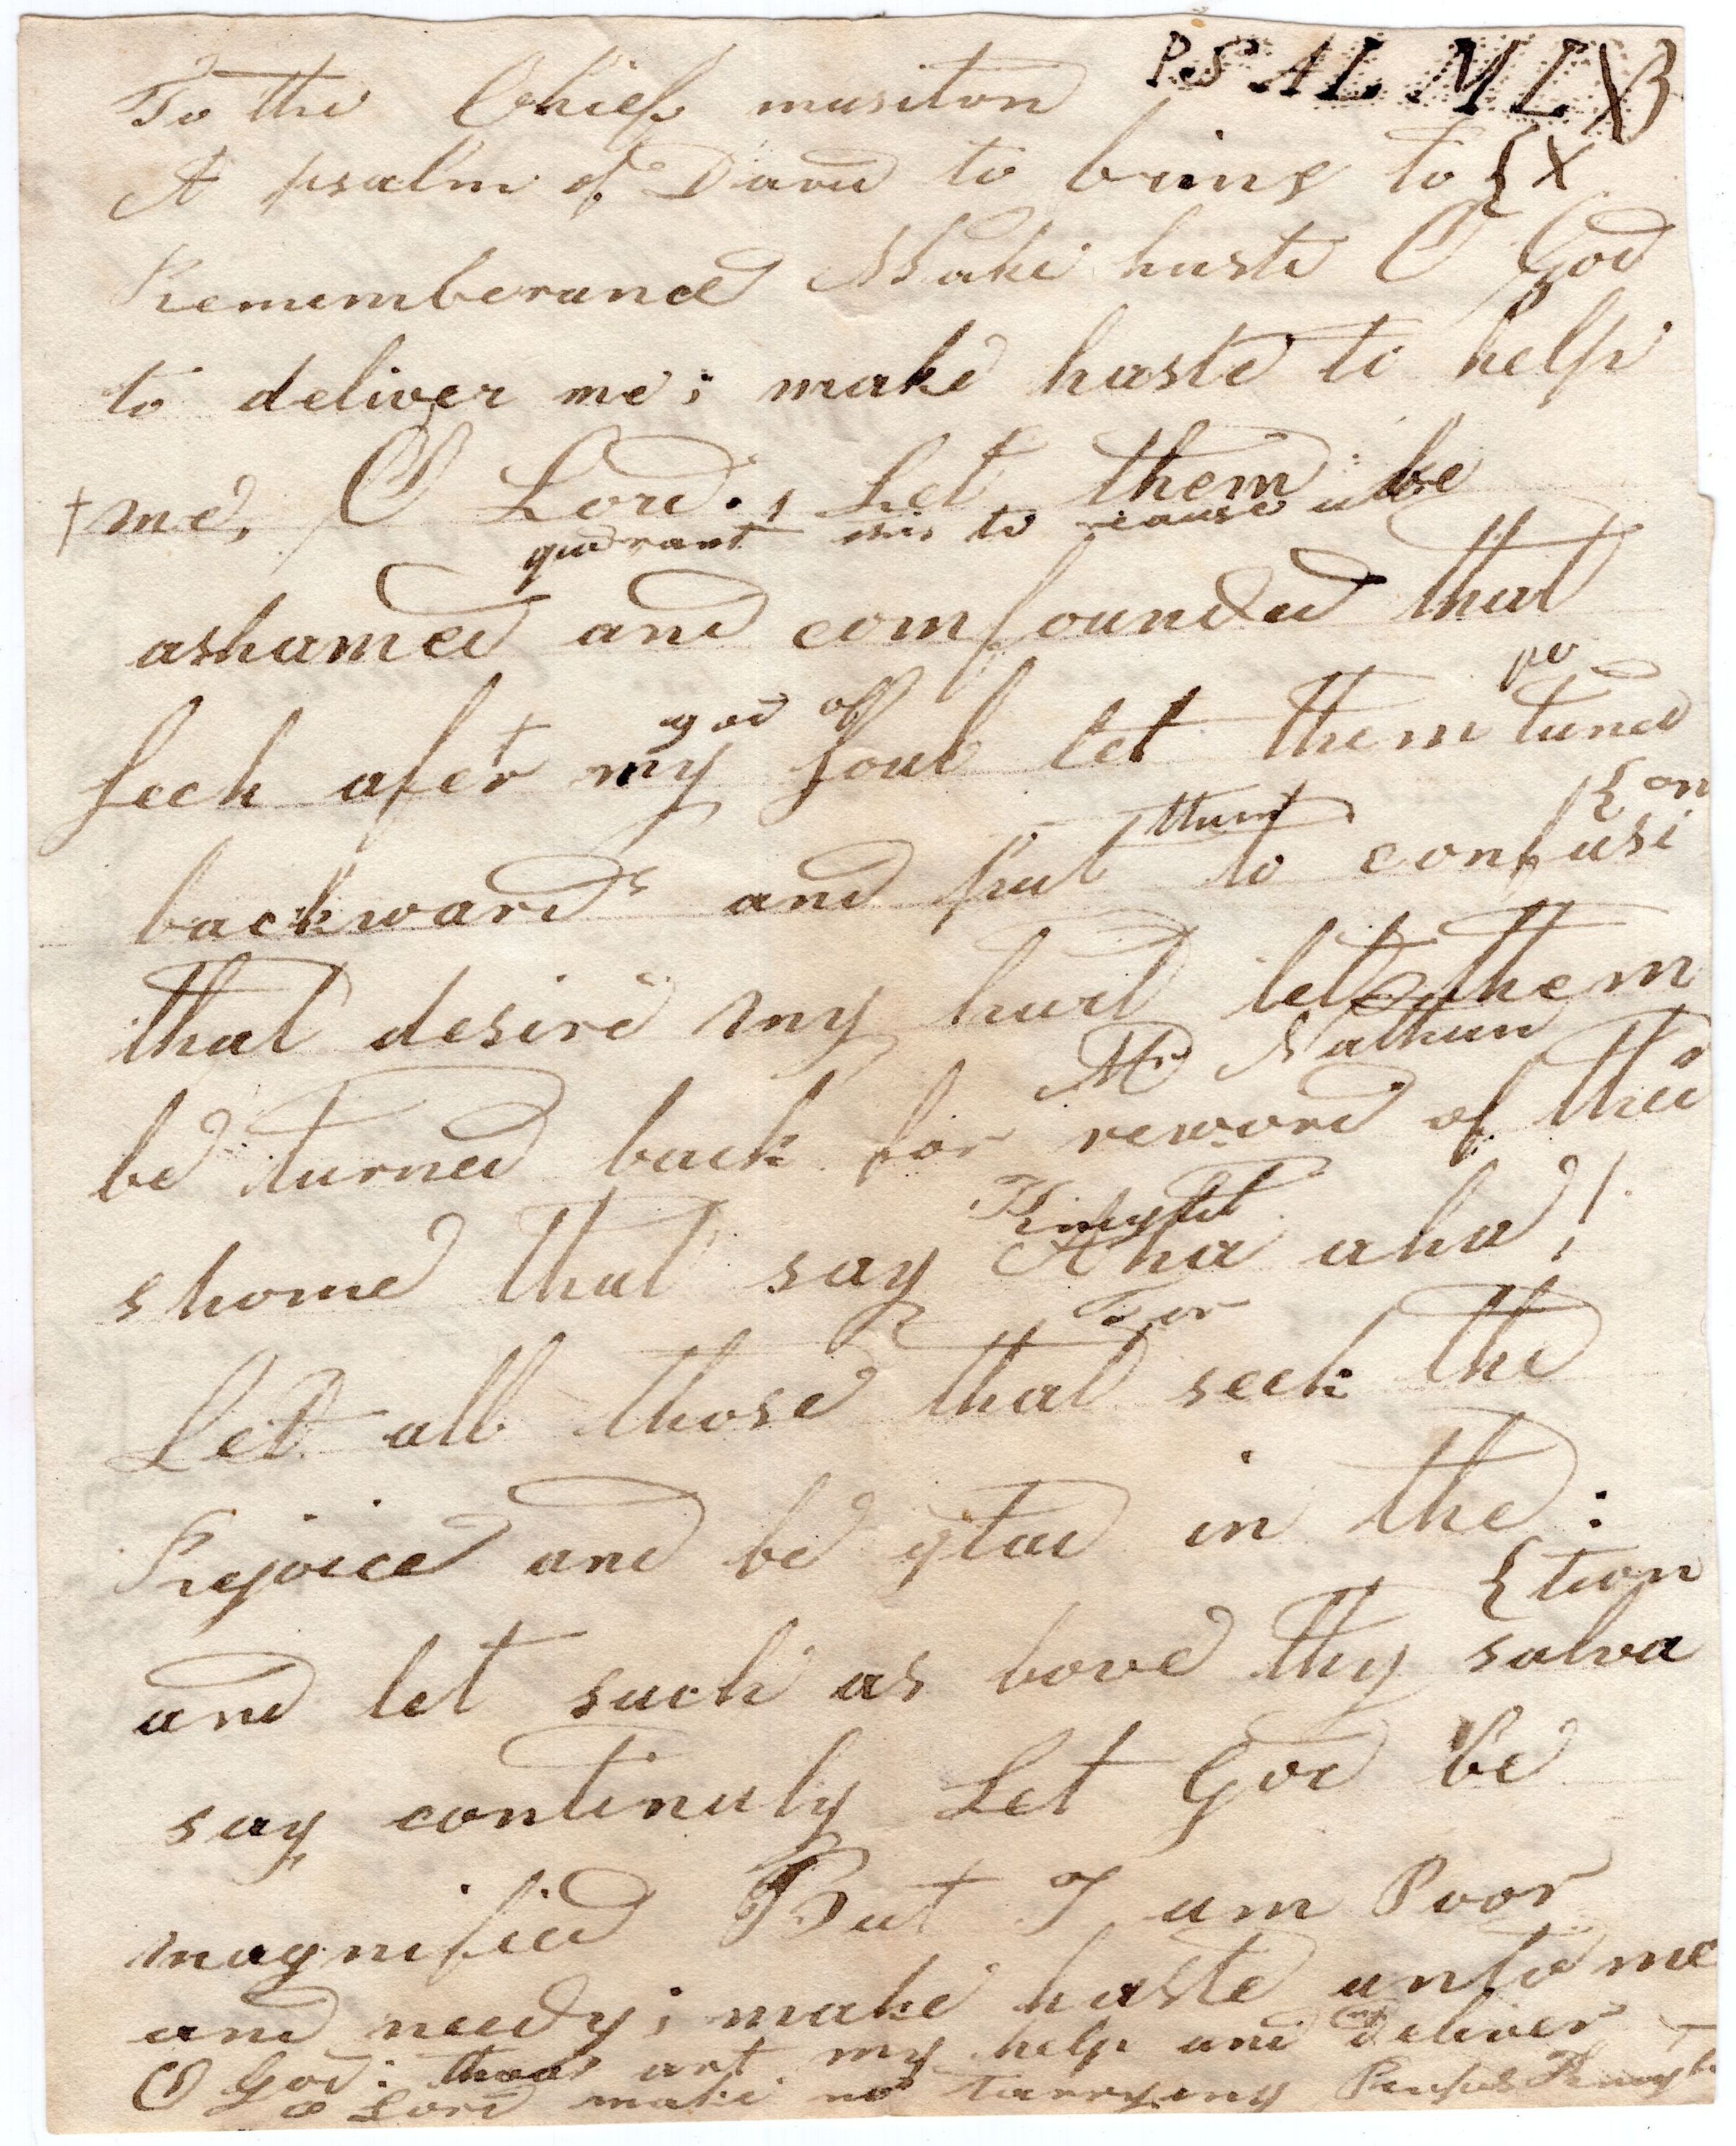 PSALM LX
To the Chief musiton
A psalm of David to bring to { X
Rememberance Make haste O God
to deliver me; make haste to help
† me, O Lord. Let them be
to cause
ashamed and comfounded that
seek after my soul let them turned
god of
backwards and put them to confusi
{ on
that desire my hurt let them
be turned back for reword of thier
Mr Nathan
shome that say Aha aha!
Knight
For
Let all those that seek the
Rejoice and be glad in the:
and let such as love thy salva
{ tion
say continuly Let God be
magnified But I am Poor
and needy; make haste unto me
O God: thou art my help and deliver
o Lord make no tarrying